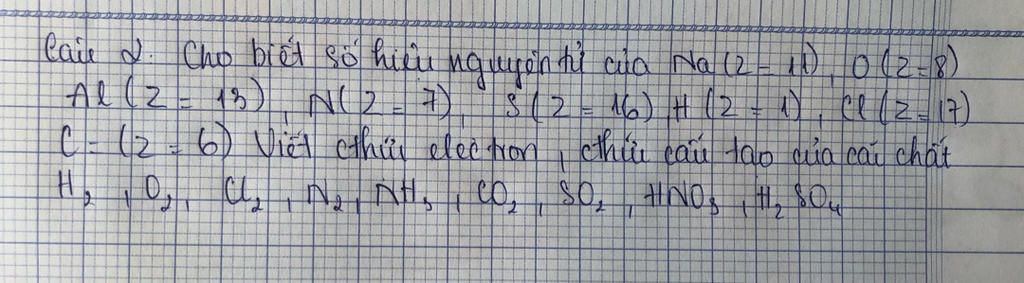 Câu 2. Cho biết số hiệu nguyên tử của Na (Z = 11), O (Z = 8)
Al (Z = 13), N (Z = 7), S (Z = 16) H (Z = 1), Cl (Z = 17)
C = (Z = 6) Viết cthức electron, cthức cấu tạo của các chất
H₂, O₂, Cl₂, N₂, NH₃, CO₂, SO₂, HNO₃, H₂SO₄